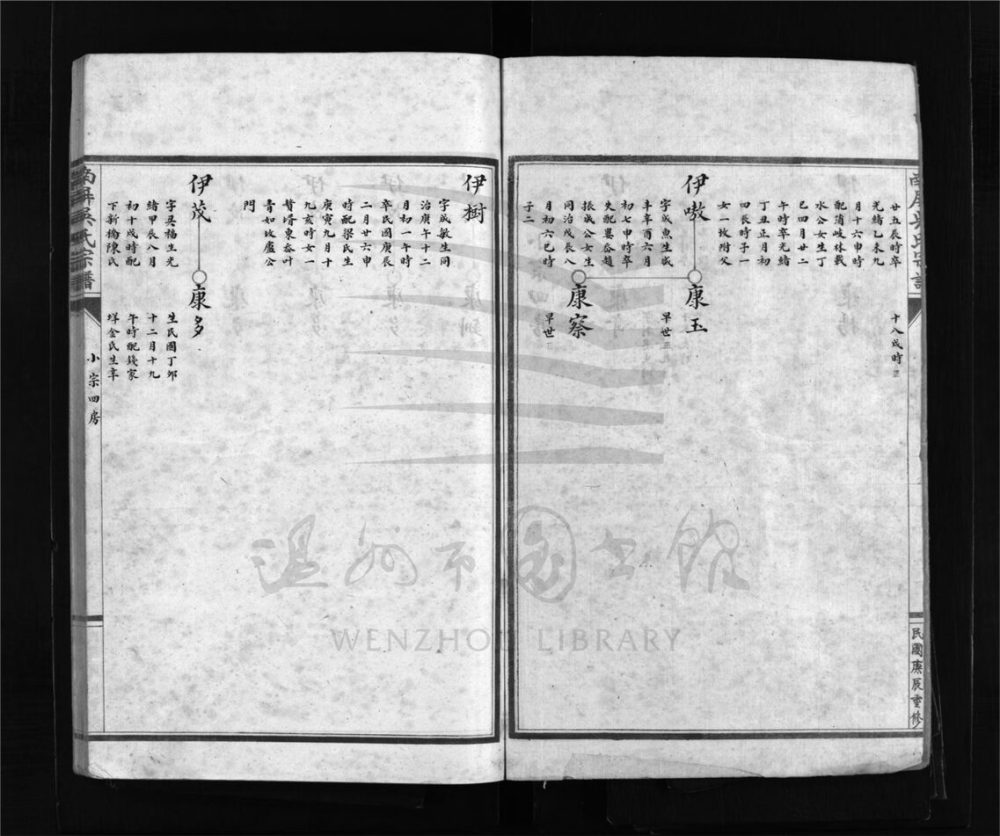 南屏吳氏宗譜
民國庚辰重修
廿五辰時卒
光緒乙未九
月十六申時
配蒲岐林載
水公女生丁
巳四月廿二
午時卒光緒
丁丑正月初
四辰時子一
女一故附父
十八戌時
伊嗷
字成魚生咸
豐辛酉六月
初七申時卒
失配婁岙趙
振成公女生
同治戊辰八
月初六巳時
子二
康玉
早世
康察
早世
伊樹
字成敏生同
治庚午十二
月初一午時
卒民國庚辰
二月廿六申
時配梁氏生
庚寅九月十
九亥時女一
贅壻東岙葉
青如故盧公
門
伊茂
字吳福生光
緒甲辰八月
初十戌時配
下新橋陳氏
康多
生民國丁卯
十二月十九
午時配錢家
垟金氏生辛
南屏吳氏宗譜
小宗四房
温州市图书馆
WENZHOU LIBRARY